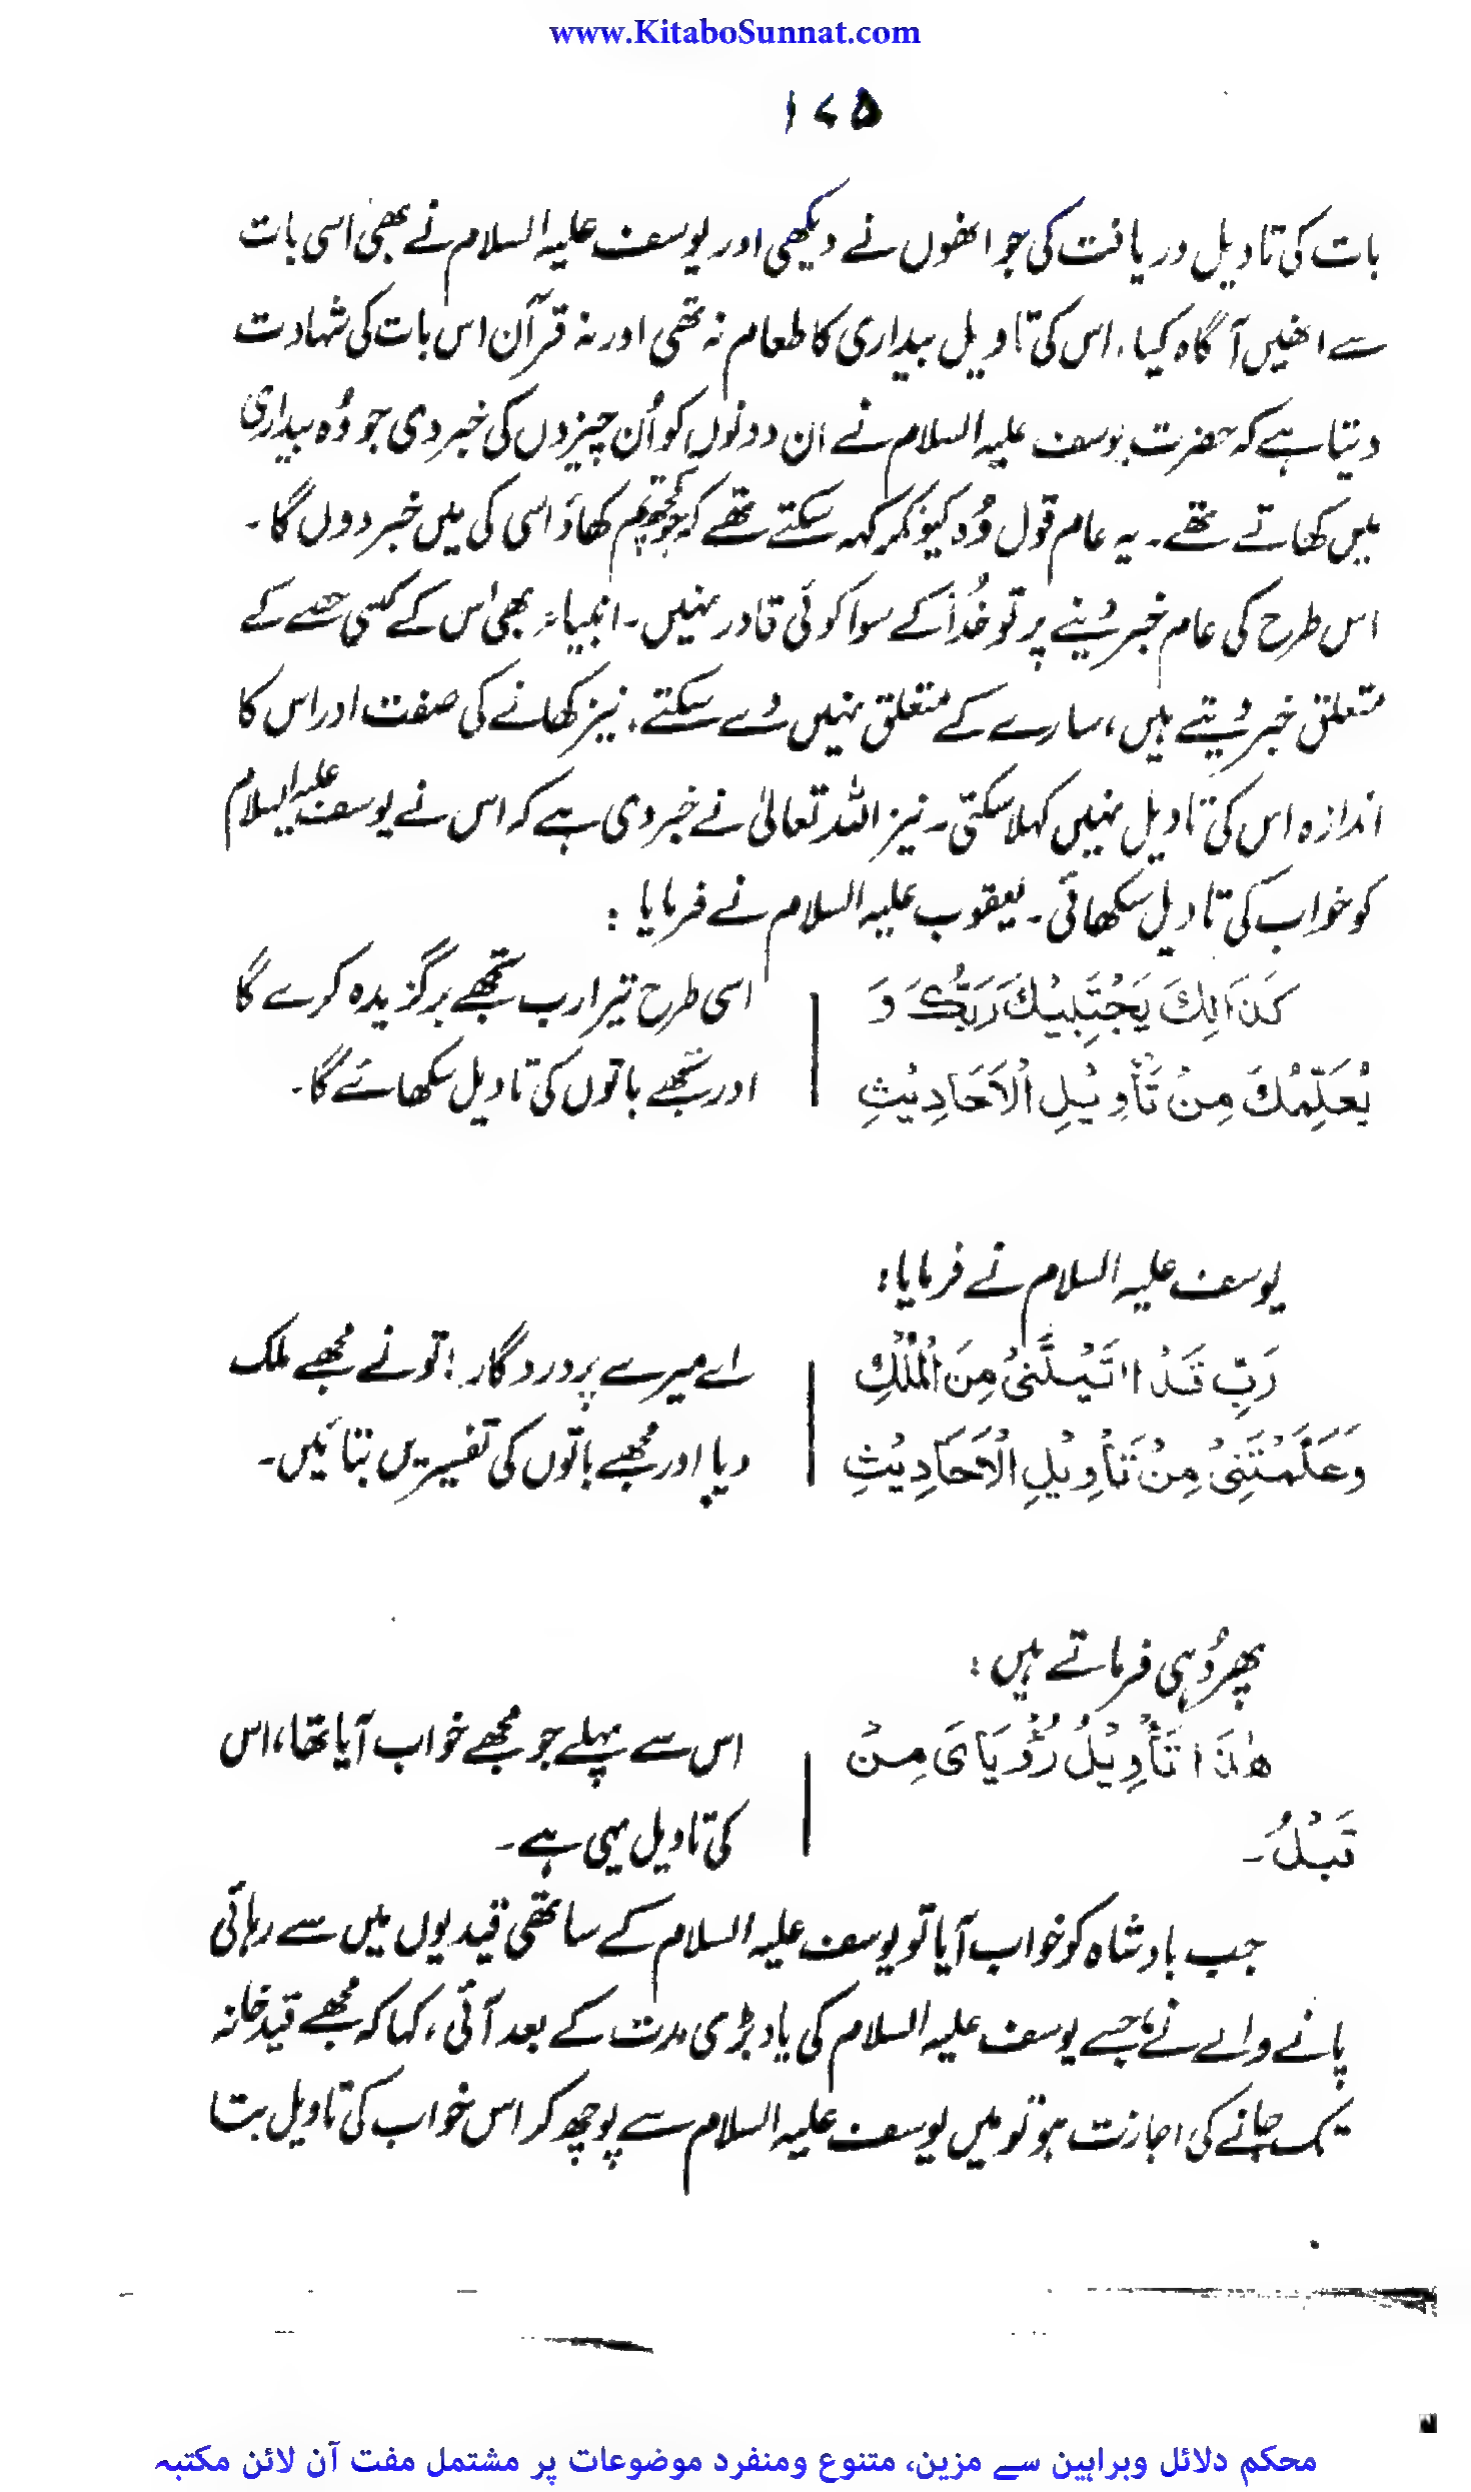 www.KitaboSunnat.com
۱۷۵
بات کی تاویل دریافت کی جو انھوں نے دیکھی اور یوسف علیہ السلام نے بھی اسی بات
سے انھیں آگاہ کیا، اس کی تاویل بیداری کا طعام نہ تھی اور نہ قرآن اس بات کی شہادت
دیتا ہے کہ حضرت یوسف علیہ السلام نے ان دونوں کو اُن چیزوں کی خبر دی جو وُہ بیداری
میں کھاتے تھے۔ یہ عام قول وُہ کیونکر کہہ سکتے تھے کہ جو کچھ تم کھاؤ اسی کی میں خبر دوں گا۔
اس طرح کی عام خبر دینے پر تو خُدا کے سوا کوئی قادر نہیں۔ انبیاء بھی اس کے کسی حصے کے
متعلق خبر دیتے ہیں، سارے کے متعلق نہیں دے سکتے۔ نیز کھانے کی صفت اور اس کا
اندازہ اس کی تاویل نہیں کہلا سکتی۔ نیز اللہ تعالیٰ نے خبر دی ہے کہ اس نے یوسف علیہ السلام
کو خواب کی تاویل سکھائی۔ یعقوب علیہ السلام نے فرمایا :
كَذَالِكَ يَجْتَبِيْكَ رَبُّكَ وَ
يُعَلِّمُكَ مِنْ تَأْوِيْلِ الْاَحَادِيْثِ
اسی طرح تیرا رب تجھے برگزیدہ کرے گا
اور تجھے باتوں کی تاویل سکھائے گا۔
یوسف علیہ السلام نے فرمایا:
رَبِّ قَدْ اٰتَيْتَنِىْ مِنَ الْمُلْكِ
وَعَلَّمْتَنِىْ مِنْ تَأْوِيْلِ الْاَحَادِيْثِ
اے میرے پروردگار! تو نے مجھے ملک
دیا اور مجھے باتوں کی تفسیریں بتائیں۔
پھر وُہی فرماتے ہیں :
هٰذَا تَأْوِيْلُ رُؤْيَاىَ مِنْ
قَبْلُ۔
اس سے پہلے جو مجھے خواب آیا تھا، اس
کی تاویل یہی ہے۔
جب بادشاہ کو خواب آیا تو یوسف علیہ السلام کے ساتھی قیدیوں میں سے رہائی
پانے والے نے جسے یوسف علیہ السلام کی یاد بڑی مدت کے بعد آئی، کہا کہ مجھے قید خانہ
تک جانے کی اجازت ہو تو میں یوسف علیہ السلام سے پوچھ کر اس خواب کی تاویل بتا
محکم دلائل وبراہین سے مزین، متنوع ومنفرد موضوعات پر مشتمل مفت آن لائن مکتبہ